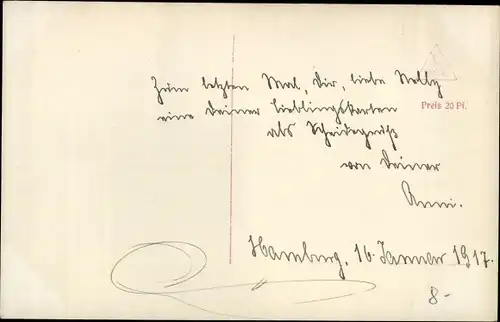 Zum letzten Mal, Dir, liebe Nelly
eine Deiner Lieblingskarten
Preis 20 Pf.
als Scheidegruß
von Deiner
Anni.
Hamburg, 16. Januar 1917.
8-